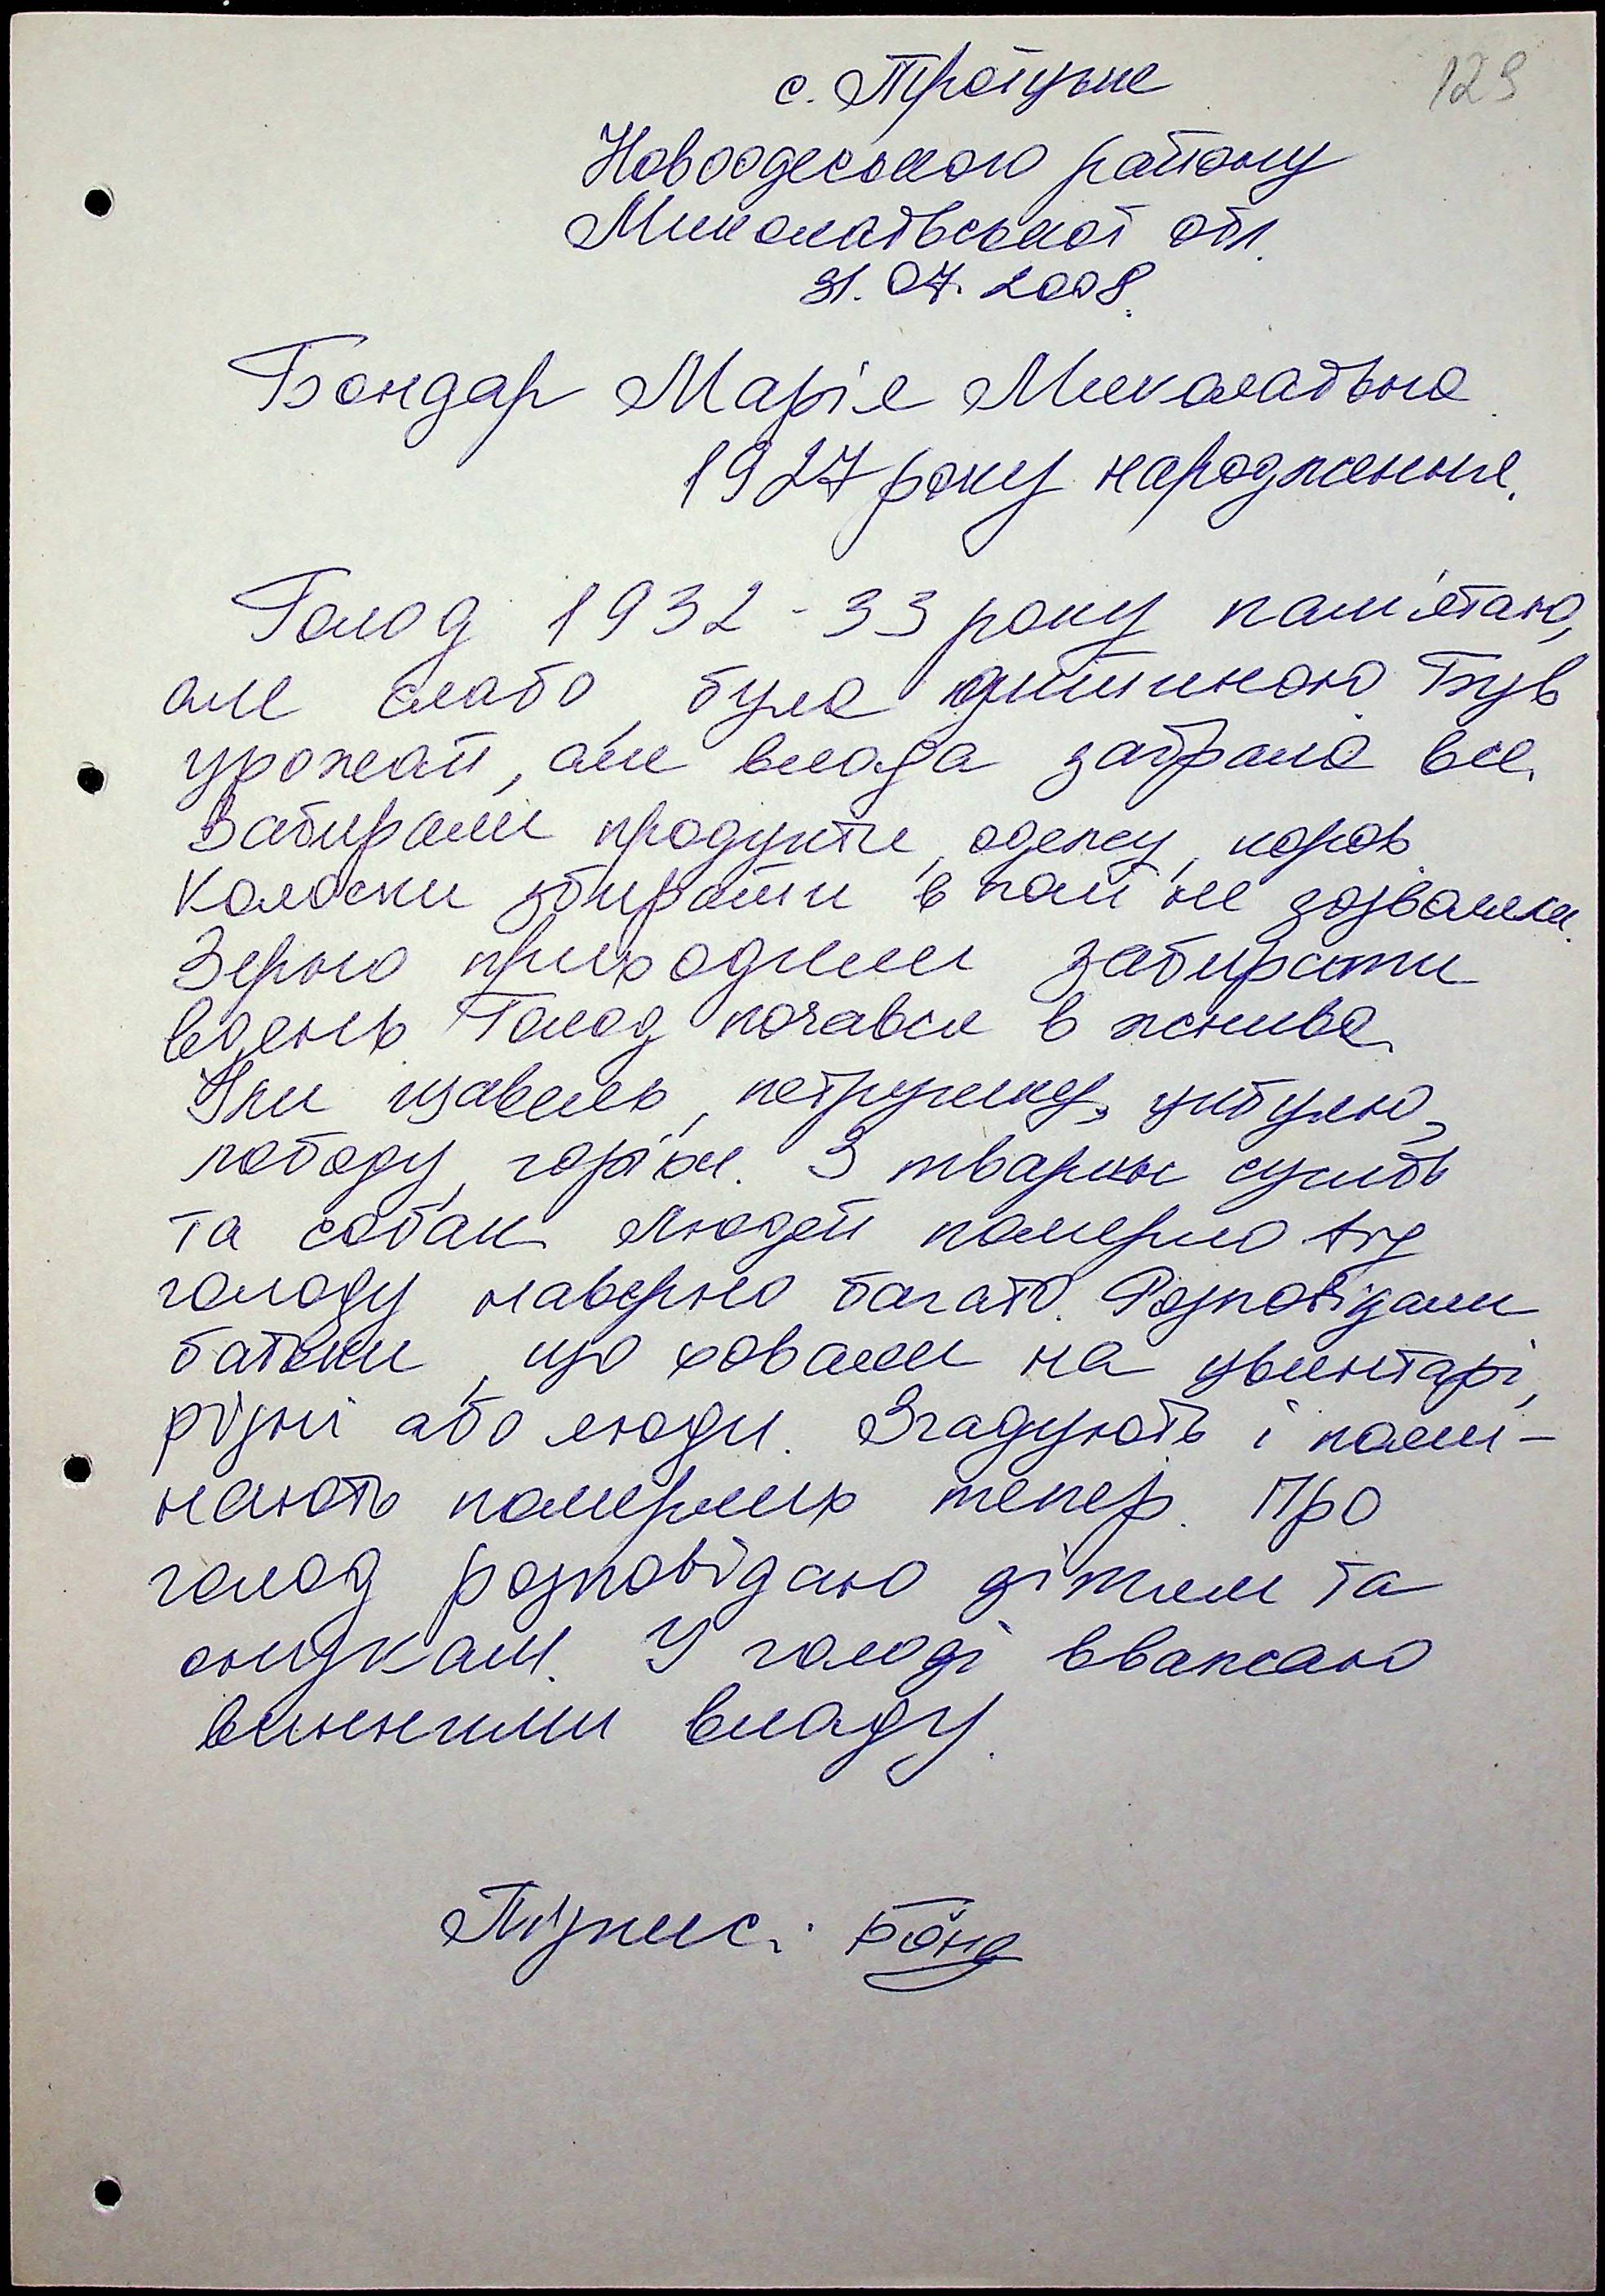 129
с. Троїцьке
Новоодеського району
Миколаївської обл.
31.07.2008.
Бондар Марія Миколаївна
1927 року народження.
Голод 1932-33 року пам'ятаю,
але слабо, була дитиною. Був
урожай, але влада забрала все.
Забирали продукти, одежу, коров.
Колоски збирати в полі не дозваляли.
Зерно приходили забирати
вдень. Голод почався в жнива.
Їли щавель, петрушку, цибулю,
лободу, горіхи. З тварин сусліів
та собак. Людей померло від
голоду наверно багато. Розповідали
батьки, що ховали на цвинтарі,
рідні або люди. Згадують і помі-
нають померлих тепер. Про
голод розповідаю дітям та
онукам. У голоді вважаю
винними владу.
Підпис: Бонд